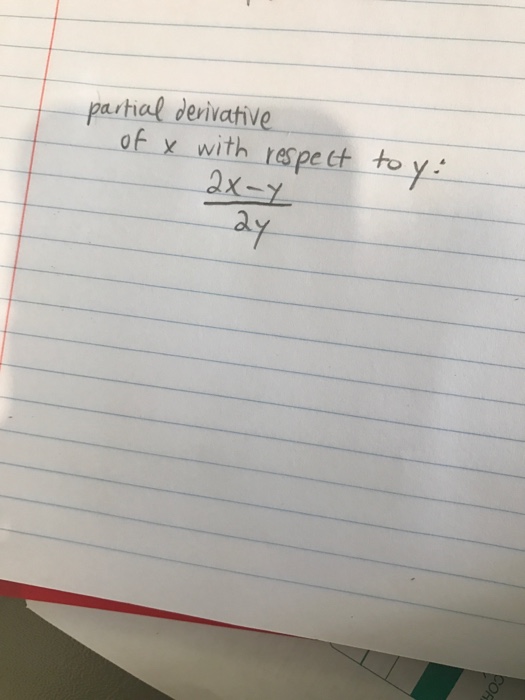 partial derivative
of x with respect to y:
2x-y
2y